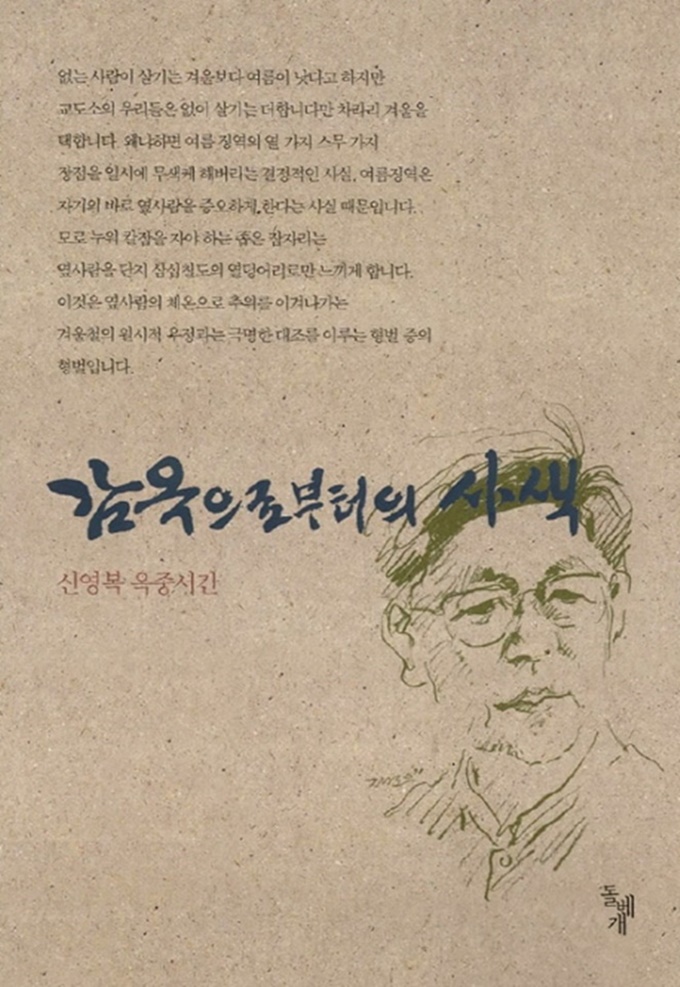 없는 사람이 살기는 겨울보다 여름이 낫다고 하지만
교도소의 우리들은 없이 살기는 더합니다만 차라리 겨울을
택합니다. 왜냐하면 여름 징역의 열 가지 스무 가지
장점을 일시에 무색케 해버리는 결정적인 사실, 여름징역은
자기의 바로 옆사람을 증오하게 한다는 사실 때문입니다.
모로 누워 칼잠을 자야 하는 좁은 잠자리는
옆사람을 단지 삼십칠도의 열덩어리로만 느끼게 합니다.
이것은 옆사람의 체온으로 추위를 이겨나가는
겨울철의 원시적 우정과는 극명한 대조를 이루는 형벌 중의
형벌입니다.
감옥으로부터의 사색
신영복 옥중서간
돌베개